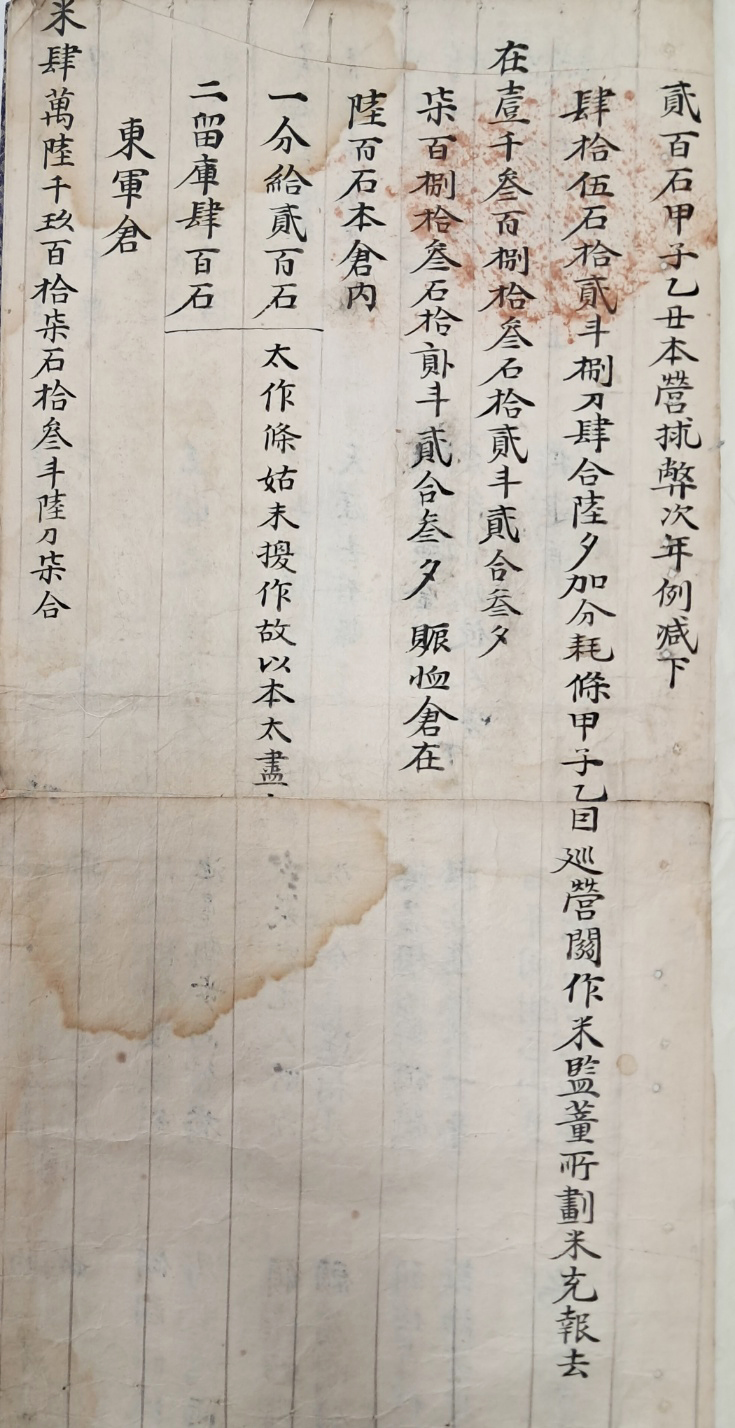 貳百石甲子乙丑本營捄弊次年例减下
肆拾伍石拾貳斗捌刀肆合陸夕加分耗條甲子乙丑巡營關作米監董所劃米充報去
在壹千叁百捌拾叁石拾貳斗貳合叁夕
柒百捌拾叁石拾貳斗貳合叁夕 賑恤倉在
陸百石本倉内
一分給貳百石 太作條姑未捘作故以本太盡
二留庫肆百石
東軍倉
米肆萬陸千玖百拾柒石拾叁斗陸刀柒合